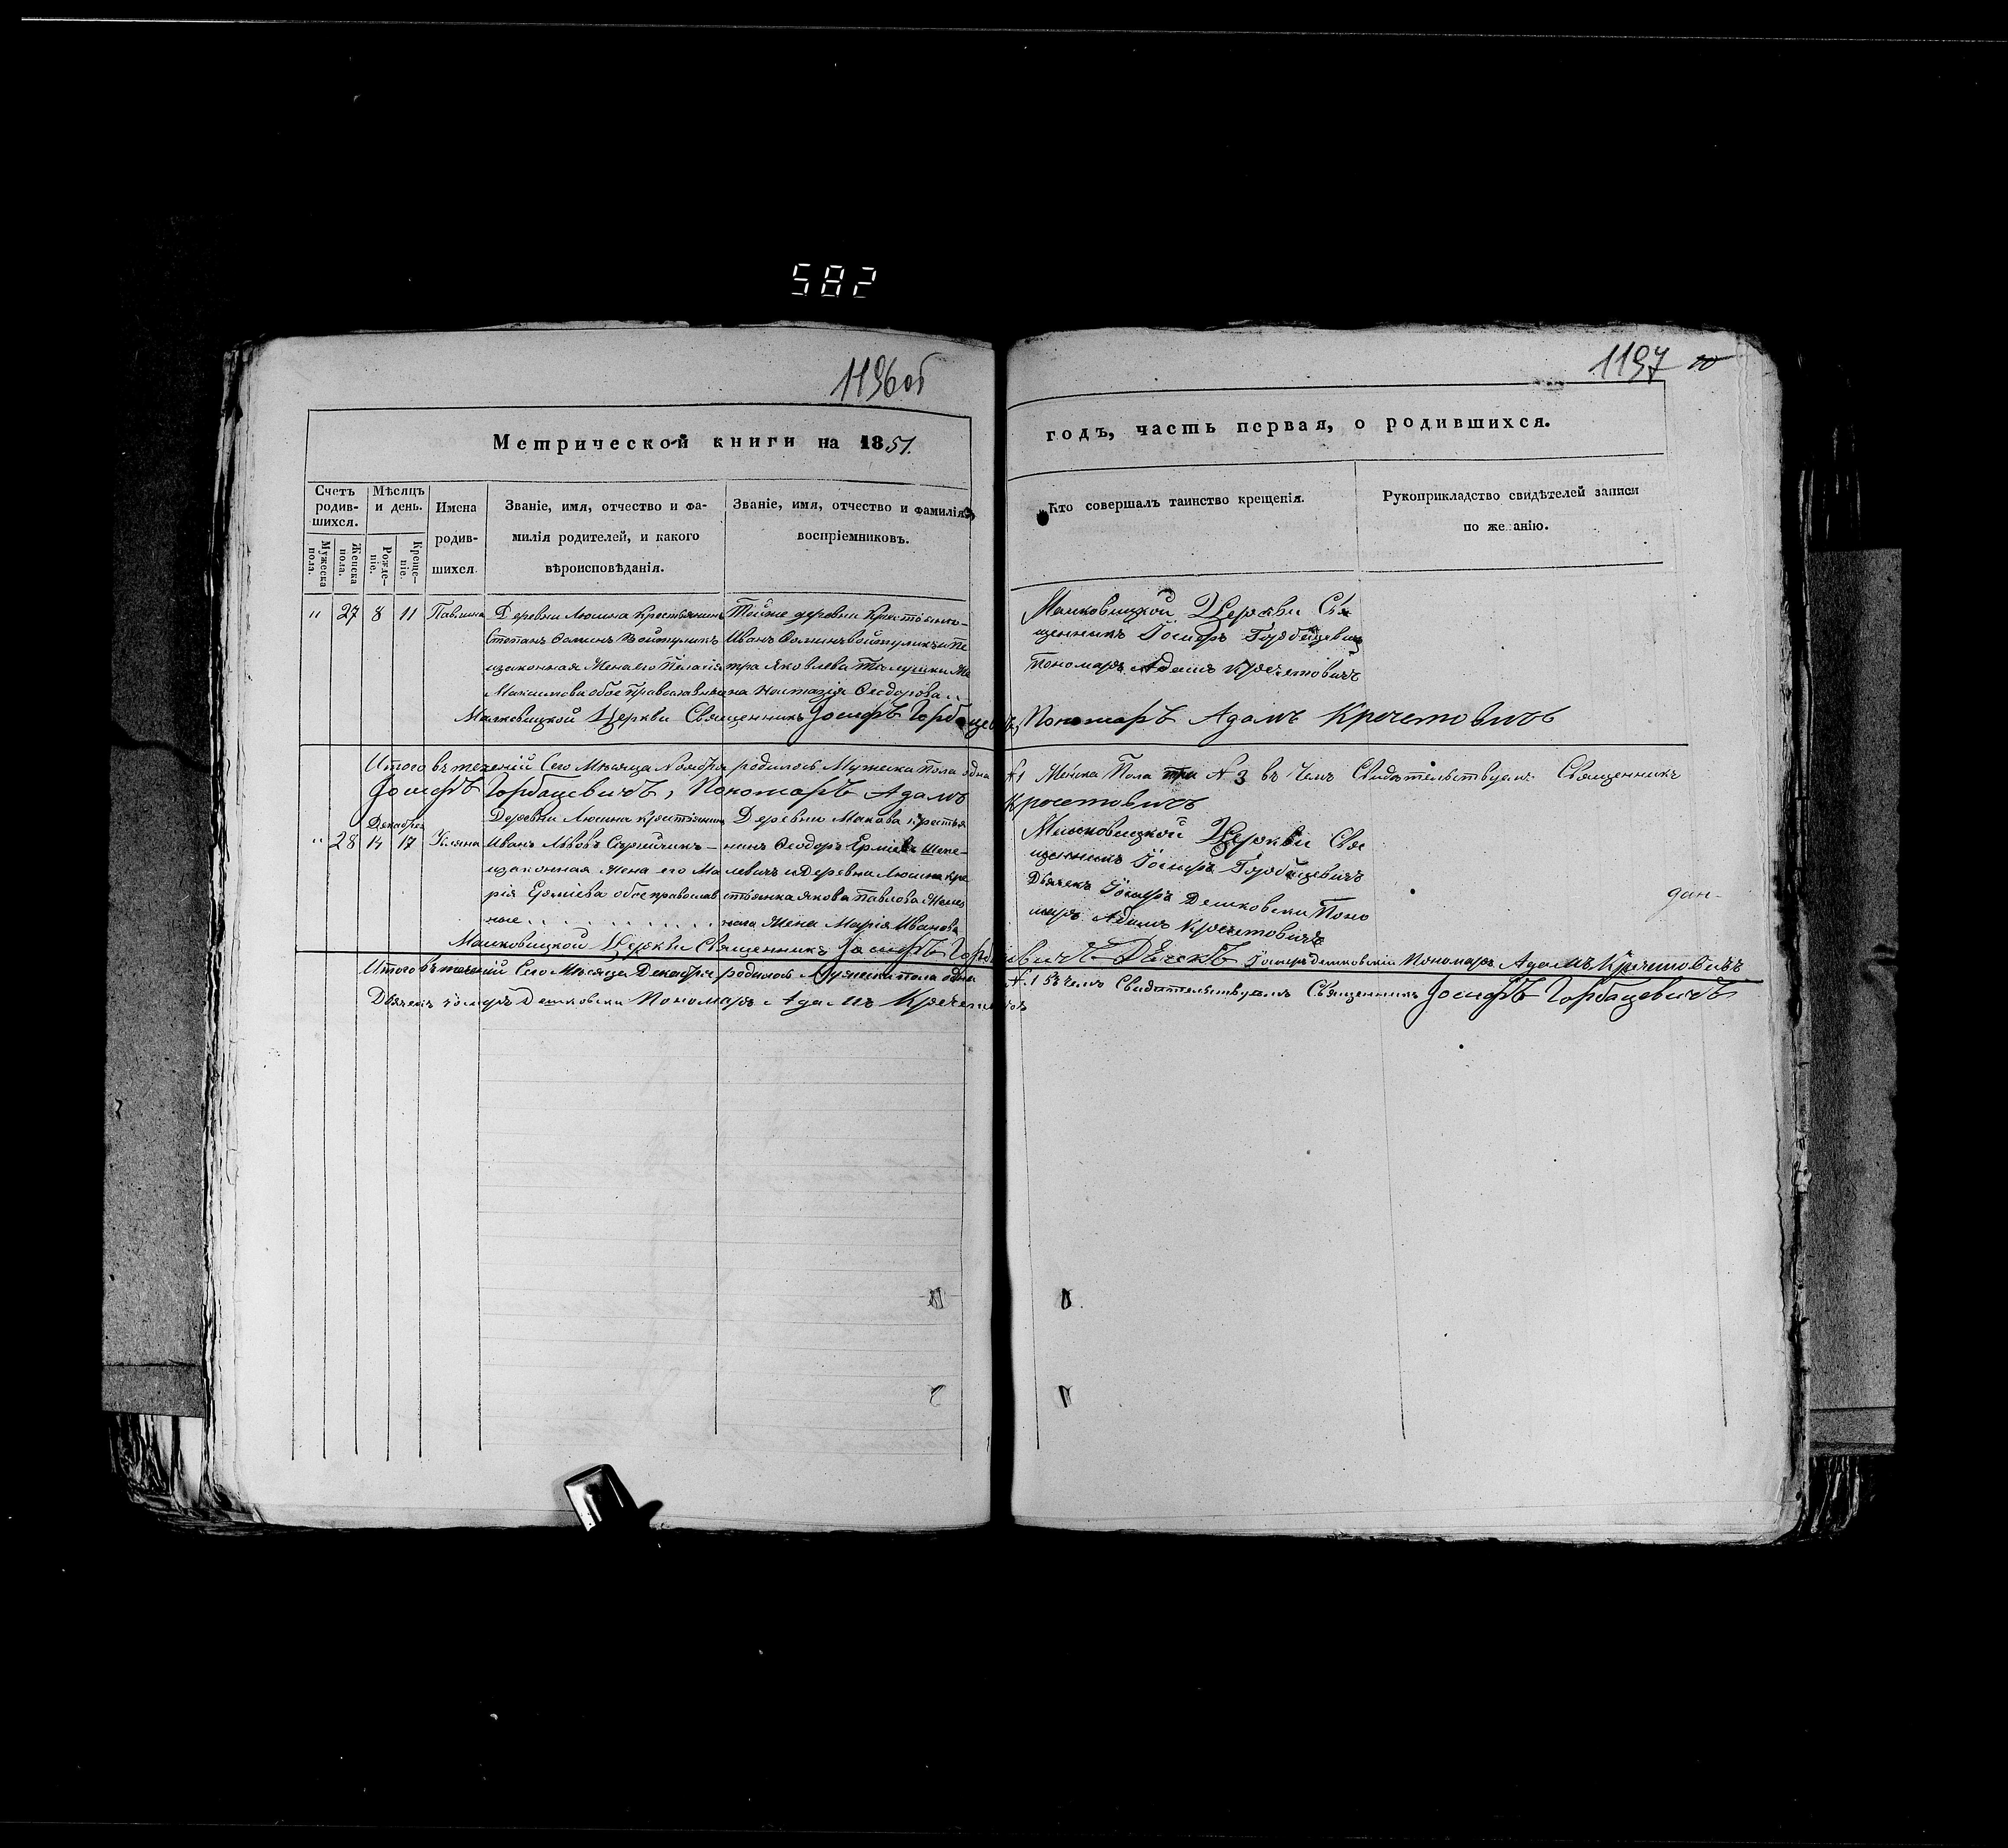 582
1196об
1197
Метрической книги на 1851.
годъ, часть первая, о родившихся.
Счетъ родив-шихся.
Мужеска пола.
Женска пола.
Мѣсяцъ и день.
Рожде-ніе.
Креще-ніе.
Имена родив-шихся.
Званіе, имя, отчество и фа-
милія родителей, и какого
вѣроисповѣданія.
Званіе, имя, отчество и фамилія
воспріемниковъ.
Кто совершалъ таинство крещенія.
Рукоприкладство свидѣтелей записи
по же анію.
" 27 8 11 Павлина
Деревни Люшна Крестьянинъ
Степанъ Ѳоминъ Войтуликъ
изаконная Жена его Пелагія
Максимова обое Православные
Тойже деревни Крестьянинъ
Иванъ Ѳоминъ Войтуликъ и Пе
тра Яковлева Жe
на Настазія Ѳеодорова
Церкви Свя
щенникъ Іосифъ Горбацевичъ
Пономаръ Адамъ Кречетовичъ
Церкви Священникъ Іосифъ Горбацевичъ, Пономаръ Адамъ Кречетовичъ
Итого въ теченій Сего Мѣсяца Ноября родилось Мужеска Пола одна №1 Женска Пола три №3 въ Чемъ Свидѣтельствуемъ Священникъ
Іосифъ Горбацевичъ, Пономаръ Адамъ Кречетовичъ
Декабрь
" 28 14 17 Уляна
Деревни Люшна крестьянинъ
Иванъ Львовъ
изаконная Жена его Ма
рія Ермiева обое православ
ные
Деревни Макова Крестья
нинъ Ѳеодоръ Ермiевъ Шепе-
левичъ и Деревни Люшна кре
стьянка Якова Павлова
Жена Марія Иванова
Церкви Свя
щенникъ Іосифъ Горбацевичъ
Дьячекъ Іосифъ Демковски Поно
маръ Адамъ Кречетовичъ
дан-
Церкви Священникъ Іосифъ Горбацевичъ Дьячекъ Іосифъ Демковскій Пономаръ Адамъ Кречетовичъ
Итого въ теченій Сего Мѣсяца Декабря родилось Мужеска пола одна №1 въ чемъ Свидѣтельствуемъ Священникъ Іосифъ Горбацевичъ
Дьячекъ Іосифъ Демковски Пономаръ Адамъ Кречетовичъ